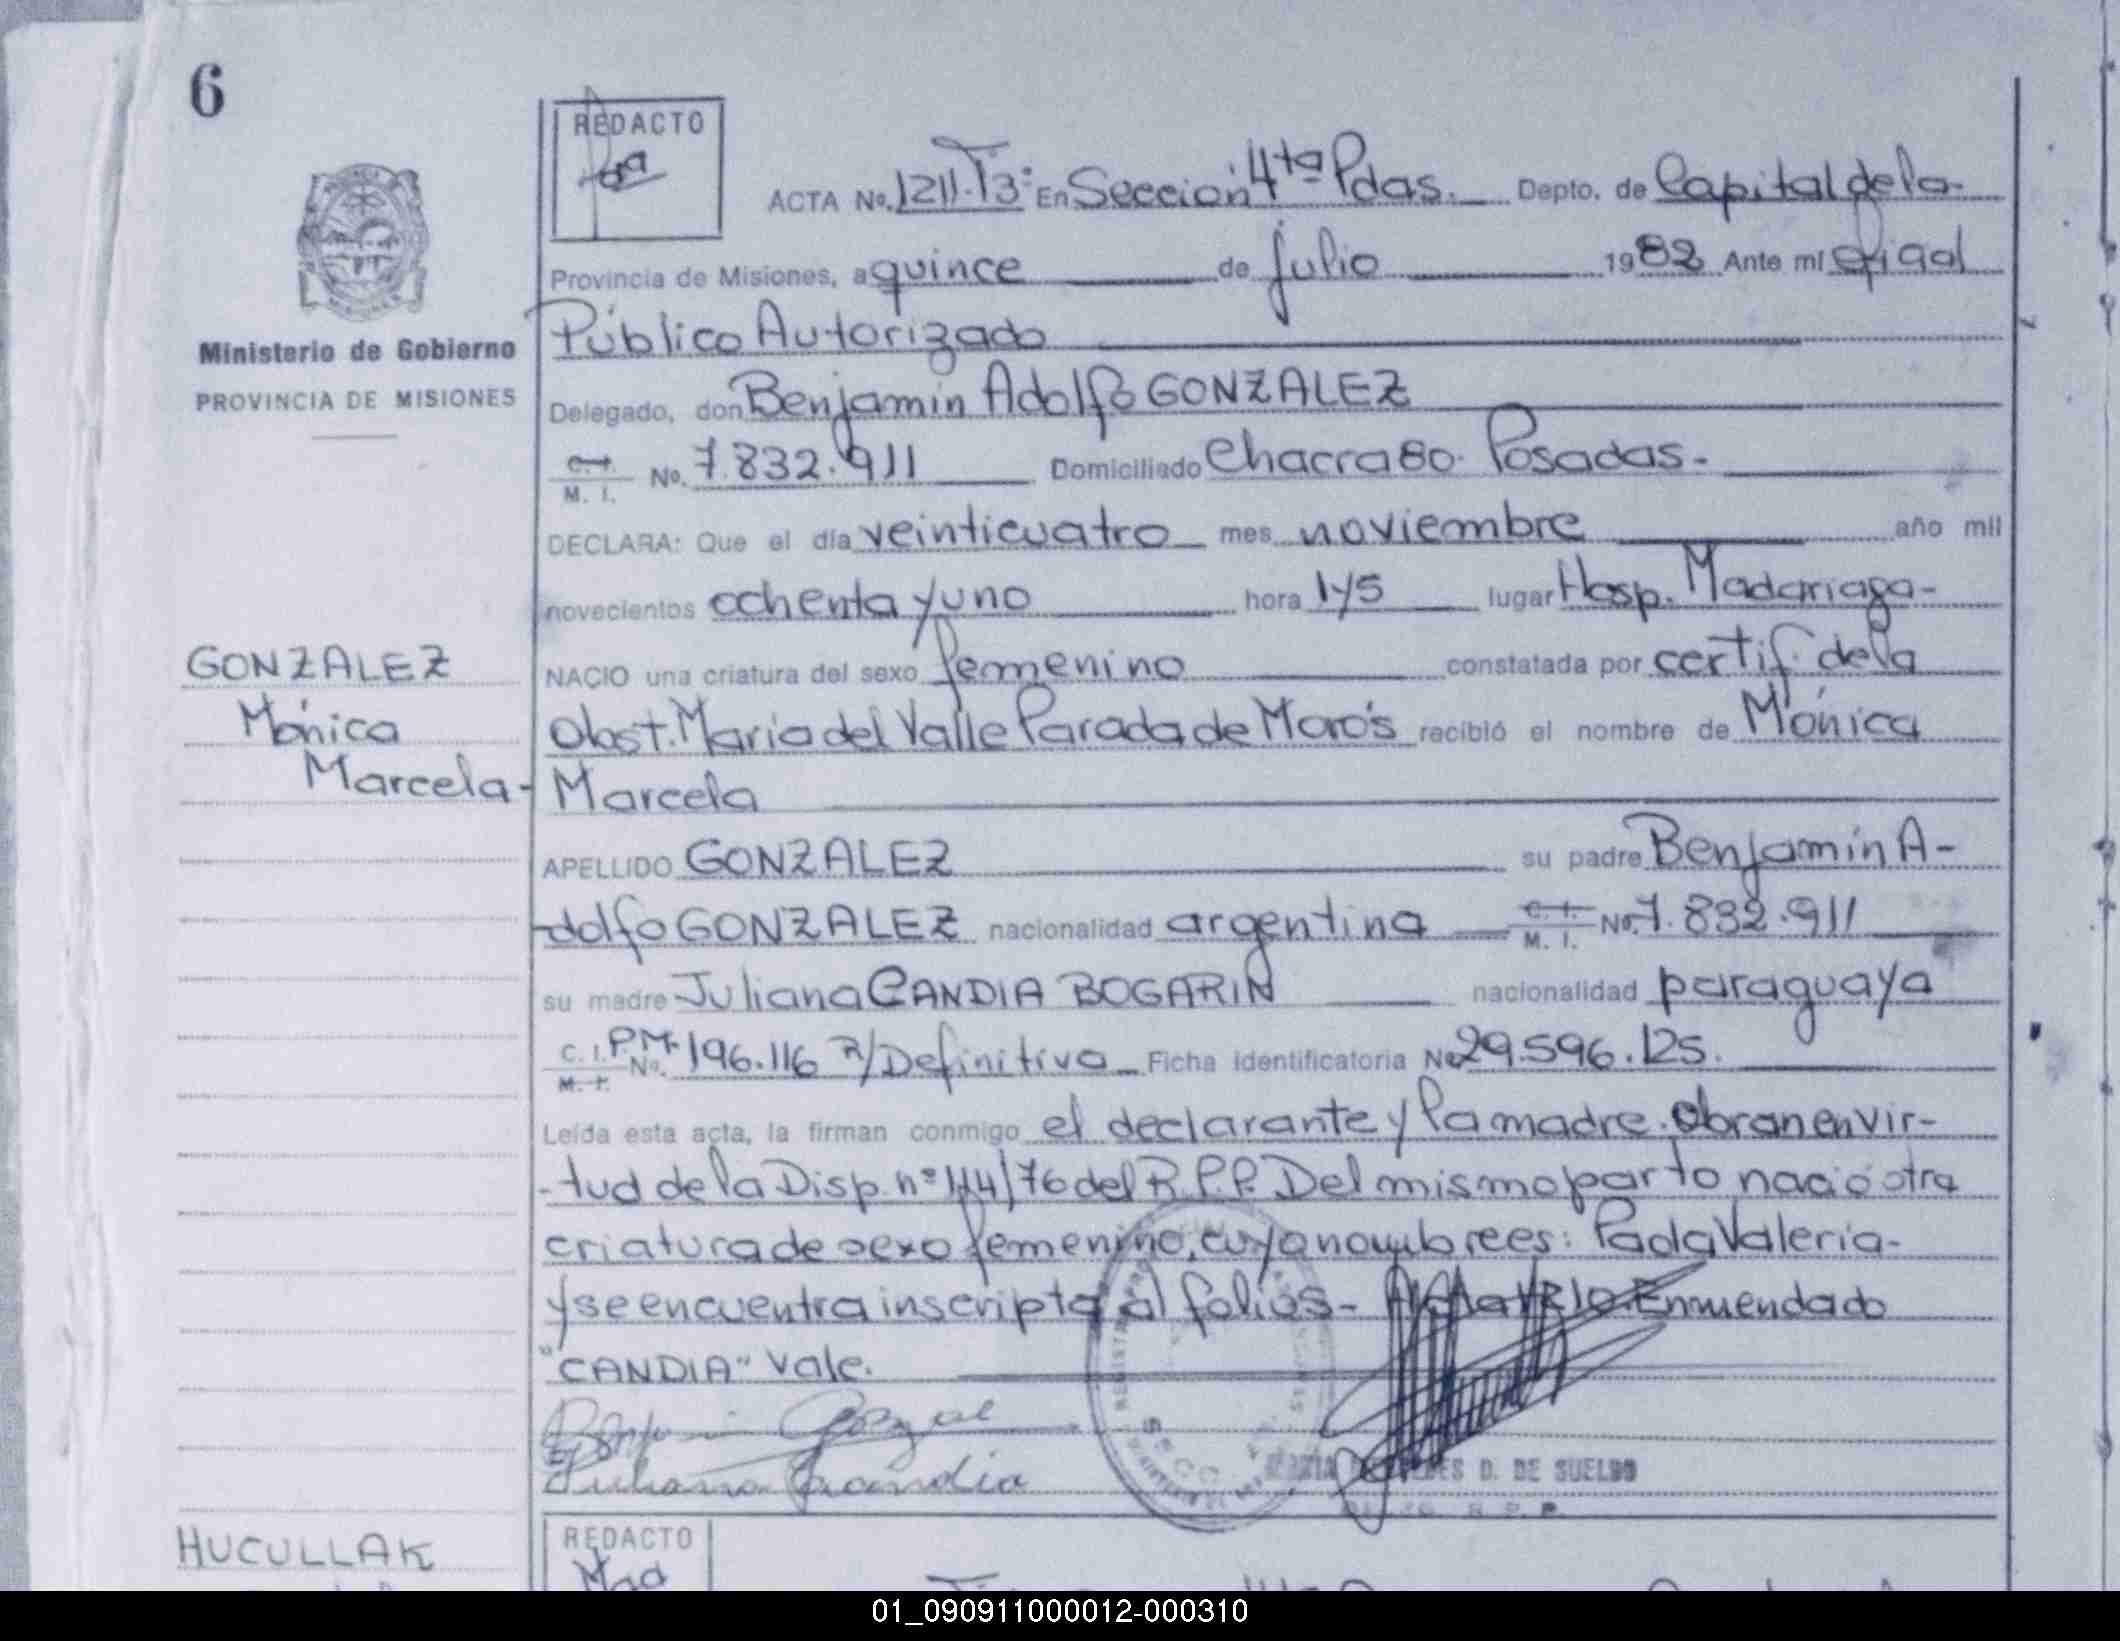 6
REDACTO
ACTA No. 1211. T3º En Sección 4ta Pdas. Depto. de Capital de la
Provincia de Misiones, a quince de julio 1982 Ante mi oficial
Ministerio de Gobierno
PROVINCIA DE MISIONES
Público Autorizado
Delegado, don Benjamín Adolfo GONZALEZ
C.I. M. I. No. 7.832.911 Domiciliado Chacra 80. Posadas.-
DECLARA: Que el día veinticuatro mes noviembre año mil
novecientos ochenta y uno hora 1 y 5 lugar Hosp. Madariaga-
GONZALEZ
Mónica
Marcela-
NACIO una criatura del sexo femenino constatada por certif. de la
Obst. María del Valle Parada de recibió el nombre de Mónica
Marcela
APELLIDO GONZALEZ su padre Benjamín A-
-dolfo GONZALEZ nacionalidad argentina C.I. M. I. No. 7.832.911
su madre Juliana CANDIA BOGARIN nacionalidad paraguaya
C. I. P.M. M. I. No. 196.116 R/Definitiva Ficha Identificatoria No 29.596.125.
Leída esta acta, la firman conmigo el declarante y la madre. Obran en vir-
-tud de la Disp. nº /76 del R.P.P. Del mismo parto nació otra
criatura de sexo femenino, cuyo nombre es: Valeria-
y se encuentra inscripta al folio 5- Enmendado
"CANDIA" vale.
Juliana Candia
D. DE SUELDO
R. P. P.
HUCULLAK
REDACTO
01_090911000012-000310